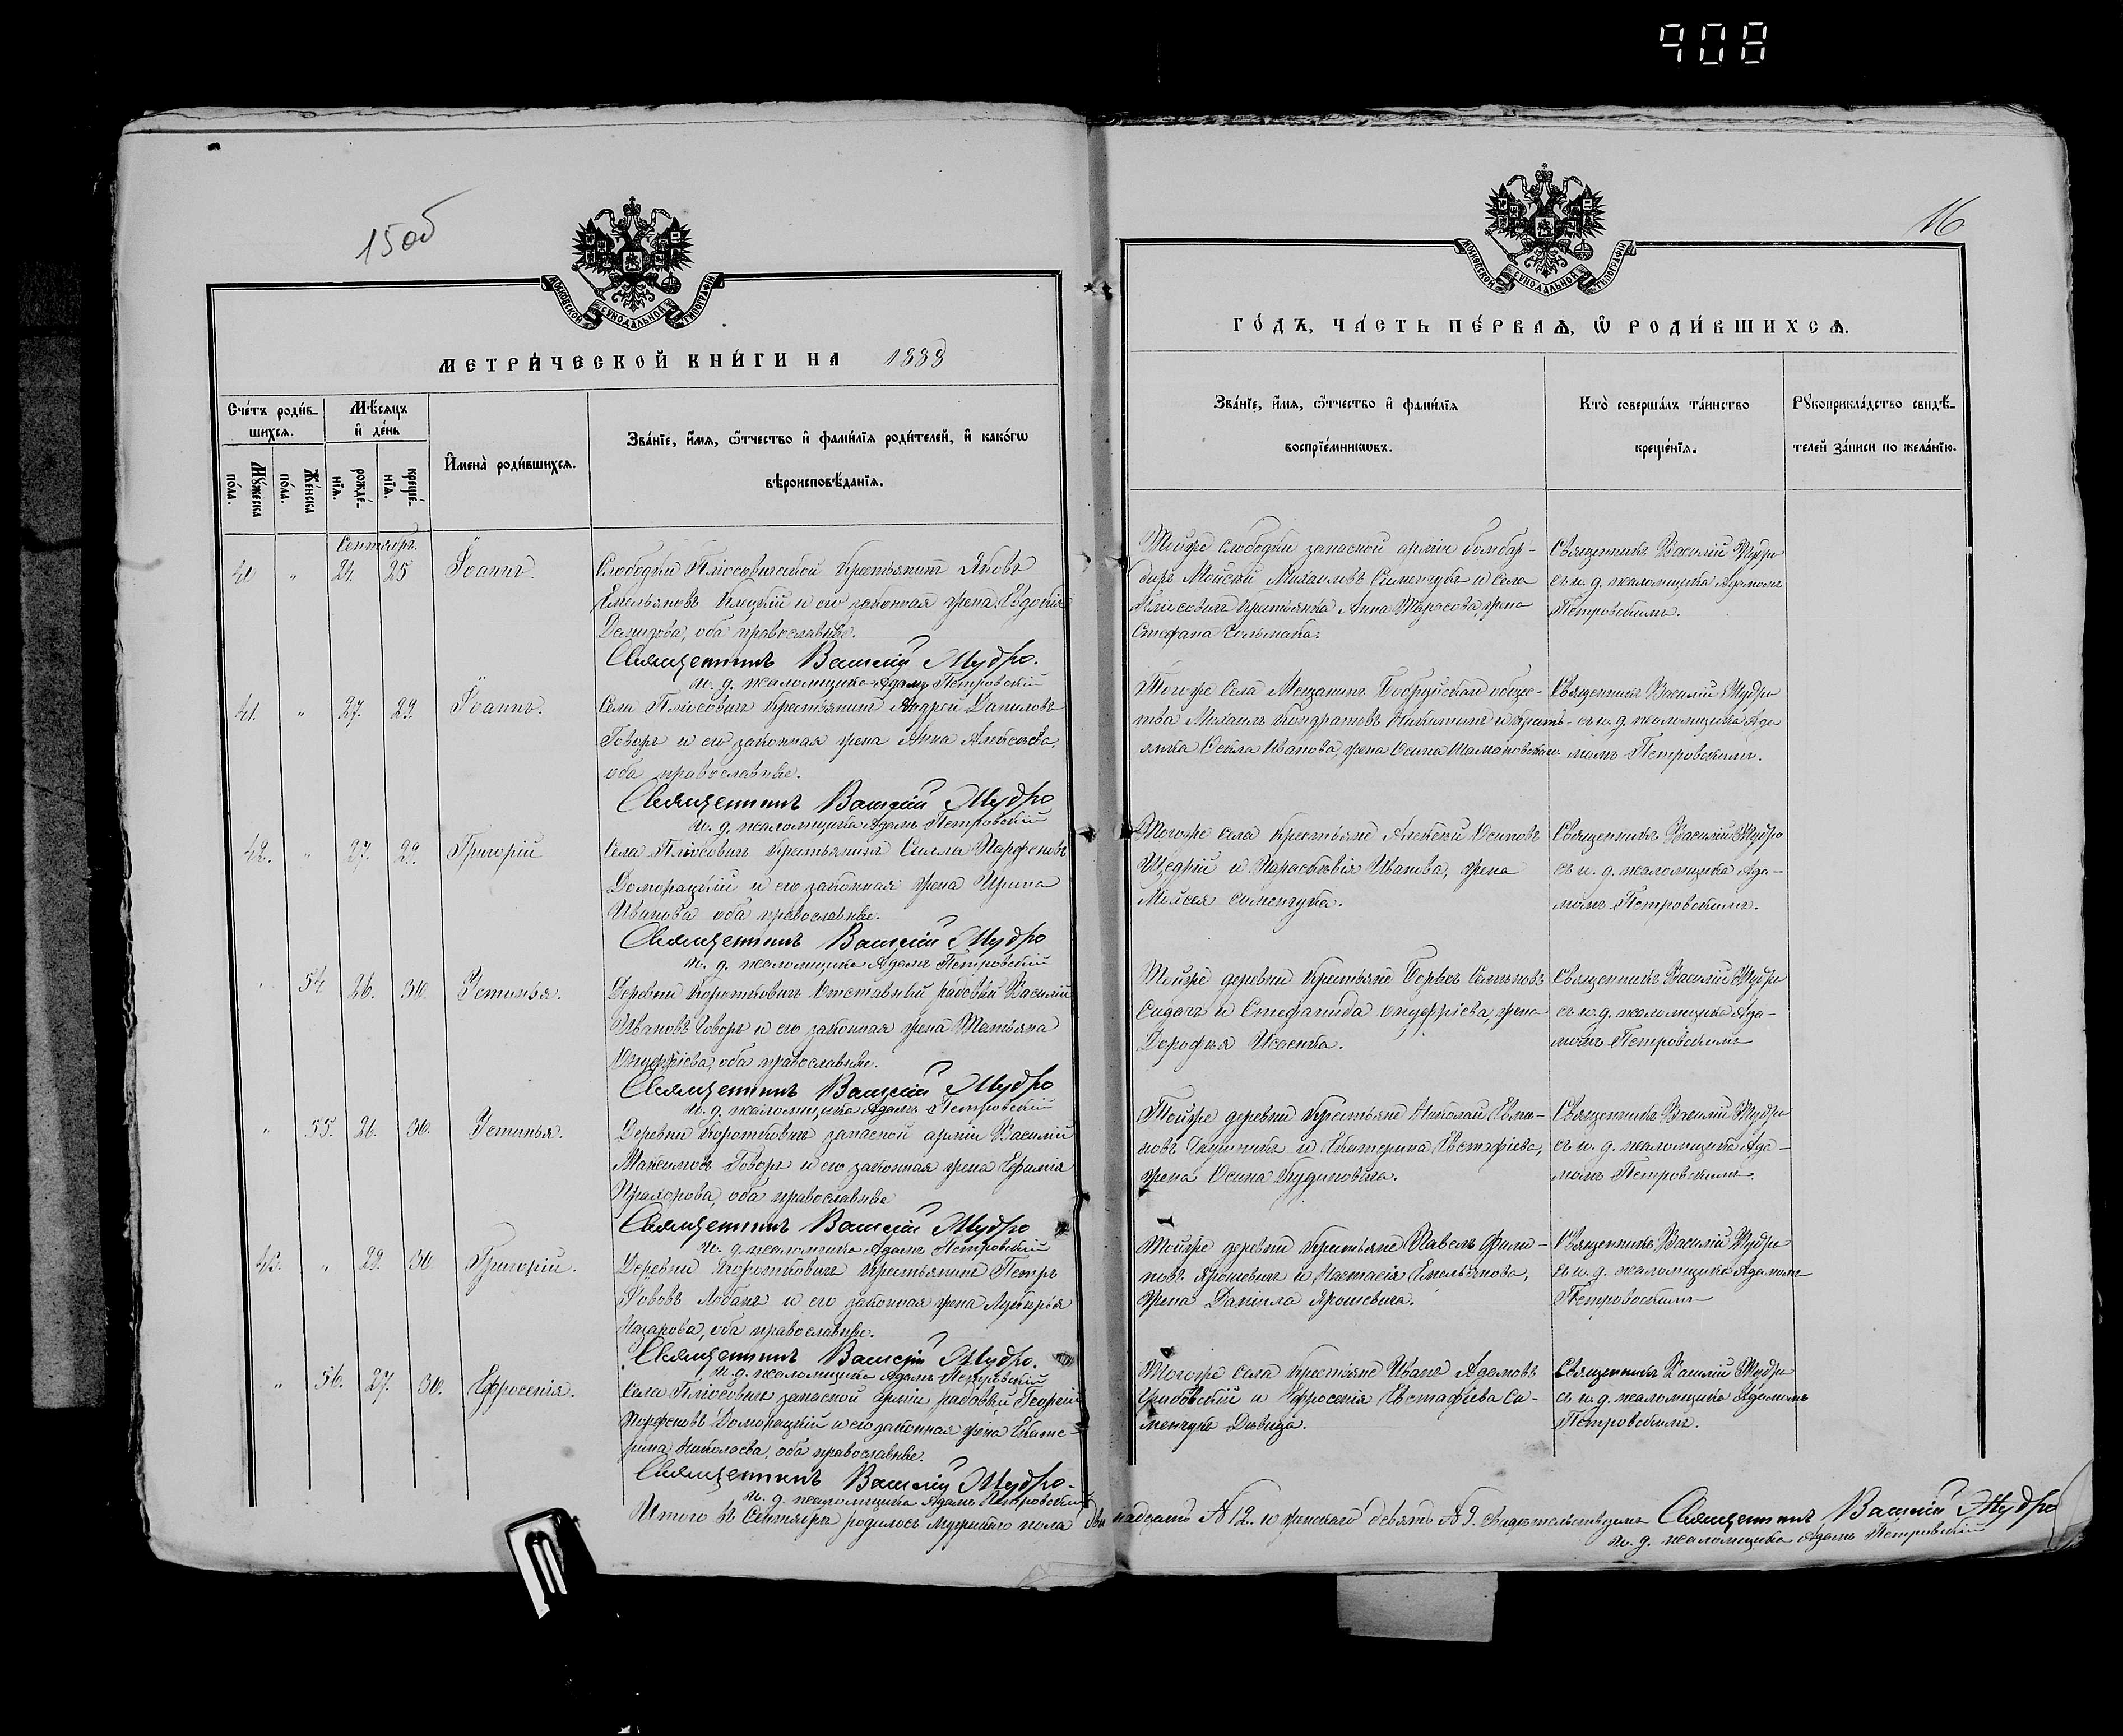 908
15 об
16
МОСКОВСКОЙ СУНОДАЛЬНОЙ ТИПОГРАФІИ
МОСКОВСКОЙ СУНОДАЛЬНОЙ ТИПОГРАФІИ
МЕТРИ́ЧЕСКОЙ КНИ́ГИ НА 1888
ГО́ДЪ, ЧА́СТЬ ПЕ́РВАѦ, Ѡ҆ РОДИ́ВШИХСѦ.
Сче́тъ роди́в-
шихсѧ.
Мꙋ́жеска
по́ла.
Же́нска
по́ла.
Мѣ́сѧцъ
и҆ де́нь
рожде́-
нїѧ.
креще́-
нїѧ.
И҆мена̀ роди́вшихсѧ.
Зва́нїе, и҆́мѧ, ѻ҆́тчество и҆ фами́лїѧ роди́телей, и҆ како́гѡ
вѣроисповѣ́данїѧ.
Зва́нїе, и҆́мѧ, ѻ҆́тчество и҆ фами́лїѧ
воспрїе́мникѡвъ.
Кто̀ соверша́лъ та́инство
креще́нїѧ.
Рꙋкоприкла́дство свидѣ́-
телей за́писи по жела́нїю.
Сентябрь.
40 " 24. 25 Іоаннъ.
Слободки Плюсовичской крестьянинъ Яковъ
Емельяновъ и его законная жена Евдокія
Демидова, оба православные.
Священникъ Василій Мудро.
и. д. псаломщика Адамъ Петровскій
Тойже слободки запасной арміи бомбар-
диръ Моисей Михаиловъ Сименчукъ и села
Плюсовичъ крестьянка Анна Тарасова, жена
Стефана
Священникъ Василій Мудро
съ и. д. псаломщика Адамомъ
Петровскимъ.
41. " 27. 29. Іоаннъ.
Села Плюсовичъ крестьянинъ Андрей Даниловъ
Говоръ и его законная жена Анна Алексѣева,
оба православные.
Священникъ Василій Мудро
и. д. псаломщика Адамъ Петровскій
Тогоже села Мещанинъ Бобруйскаго обще-
ства Михаилъ Кондратовъ Никитинъ и кресть-
янка Ѳекла Иванова, жена Осипа Шамановскаго.
Священникъ Василій Мудро
съ и. д. псаломщика Ада
момъ Петровскимъ.
42. " 27. 29. Григорій
Села Плюсовичъ крестьянинъ Силла Парфеновъ
Доморацкій и его законная жена Ирина
Иванова оба православные.
Священникъ Василій Мудро
и. д. псаломщика Адамъ Петровскій
Тогоже села крестьяне Алексѣй Осиповъ
Щедрій и Параскевія Иванова, жена
Моисея Сименчука.
Священникъ Василій Мудро
съ и. д. псаломщика Ада-
момъ Петровскимъ.
" 54. 26. 30. Устинья.
Деревни Коротковичъ отставный рядовый Василій
Ивановъ Говоръ и его законная жена Татьяна
Онуфріева, оба православные.
Священникъ Василій Мудро
и. д. псаломщика Адамъ Петровскій
Тойже деревни крестьяне Борисъ
Сидачъ и Стефанида Онуфріева, жена
Дорофея Исаенка.
Священникъ Василій Мудро
съ и. д. псаломщика Ада-
момъ Петровскимъ
" 55. 26. 30. Устинья.
Деревни Коротковичъ запасной арміи Василій
Максимовъ Говоръ и его законная жена Ефимія
Прахорова, оба православные
Священникъ Василій Мудро
и. д. псаломщика Адамъ Петровскій
Тойже деревни крестьяне Николай
и Екатерина Евстафіева,
жена Осипа Кудиновича.
Священникъ Василій Мудро
съ и. д. псаломщика Ада-
момъ Петровскимъ.
43. " 29. 30 Григорій.
Деревни Коротковичъ крестьянинъ Петръ
Іововъ Лобанъ и его законная жена Лукерья
Назарова, оба православные.
Священникъ Василій Мудро.
и. д. псаломщика Адамъ Петровскій
Тойже деревни крестьяне Павелъ Фили-
повъ Ярошевичъ и Настасія Емельянова,
жена Даніила Ярошевича.
Священникъ Василій Мудро
съ и. д. псаломщика Адамомъ
Петровскимъ
" 56. 27. 30. Ефросенія.
Села Плюсовичъ запасной арміи рядовый Георгій
Парфеновъ Доморацкій и его законная жена Екате-
рина Николаева, оба православные.
Священникъ Василій Мудро.
и. д. псаломщика Адамъ Петровскій
Тогоже села крестьяне Иванъ Адамовъ
и Ефросенія Евстафіева Си-
менчукъ Дѣвица.
Священникъ Василій Мудро
съ и. д. псаломщика Адамомъ
Петровскимъ.
Итого въ Сентябрѣ родилось мужскаго пола двѣнадцать № 12. и женскаго девять № 9. Свидѣтельствуемъ Священникъ Василій Мудро
и. д. псаломщика Адамъ Петровскій